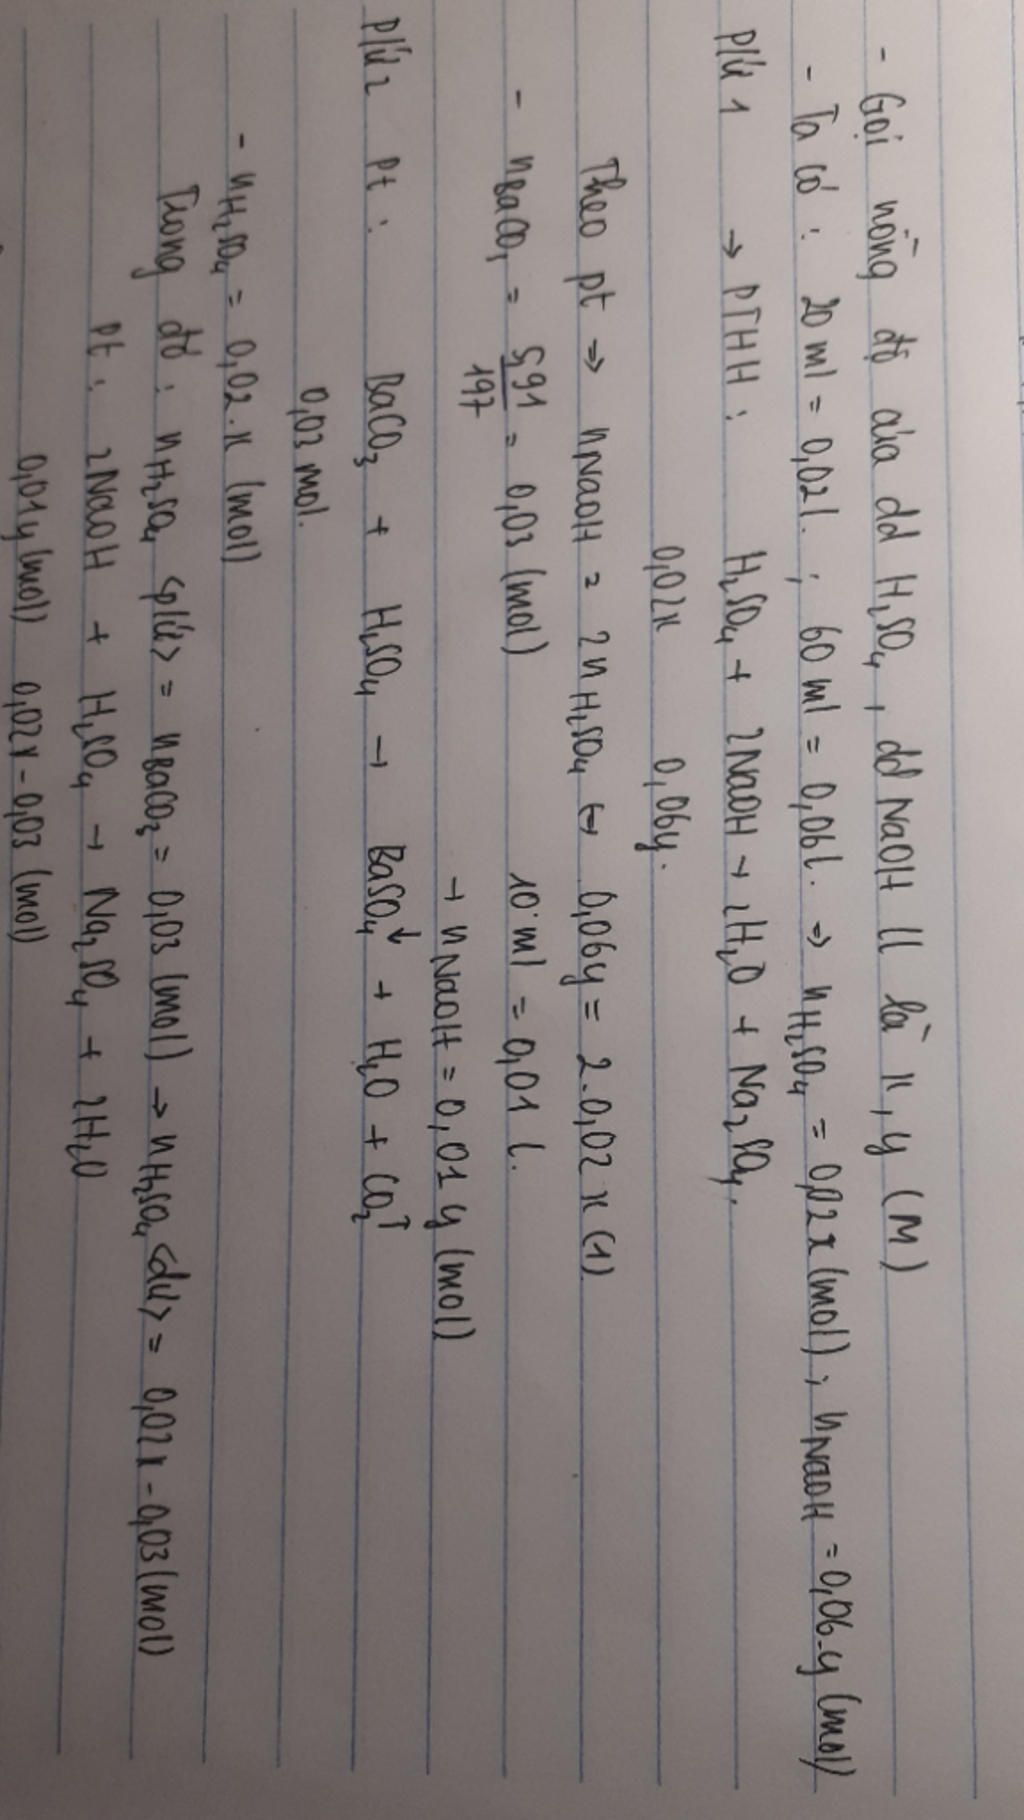 - Gọi nồng độ của dd H₂SO₄, dd NaOH ll là x, y (M)
- Ta có : 20 ml = 0,02l. ; 60 ml = 0,06l. ⇒ nH₂SO₄ = 0,02x (mol) ; nNaOH = 0,06.y (mol)
p/ứ 1 → PTHH : H₂SO₄ + 2NaOH → 2H₂O + Na₂SO₄.
0,02x 0,06y.
Theo pt ⇒ nNaOH = 2nH₂SO₄ ↔ 0,06y = 2.0,02x (1)
- nBaCO₃ = 5,91/197 = 0,03 (mol) 10 ml = 0,01 l.
→ nNaOH = 0,01y (mol)
p/ứ 2 pt : BaCO₃ + H₂SO₄ → BaSO₄↓ + H₂O + CO₂↑
0,03 mol.
- nH₂SO₄ = 0,02.x (mol)
Trong đó : nH₂SO₄ <p/ứ> = nBaCO₃ = 0,03 (mol) → nH₂SO₄ <dư> = 0,02x - 0,03 (mol)
pt : 2NaOH + H₂SO₄ → Na₂SO₄ + 2H₂O
0,01y (mol) 0,02x - 0,03 (mol)